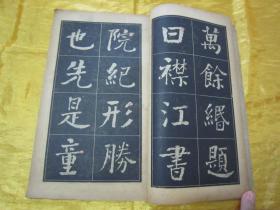 萬餘緡題
曰襟江書
院紀形勝
也先是童